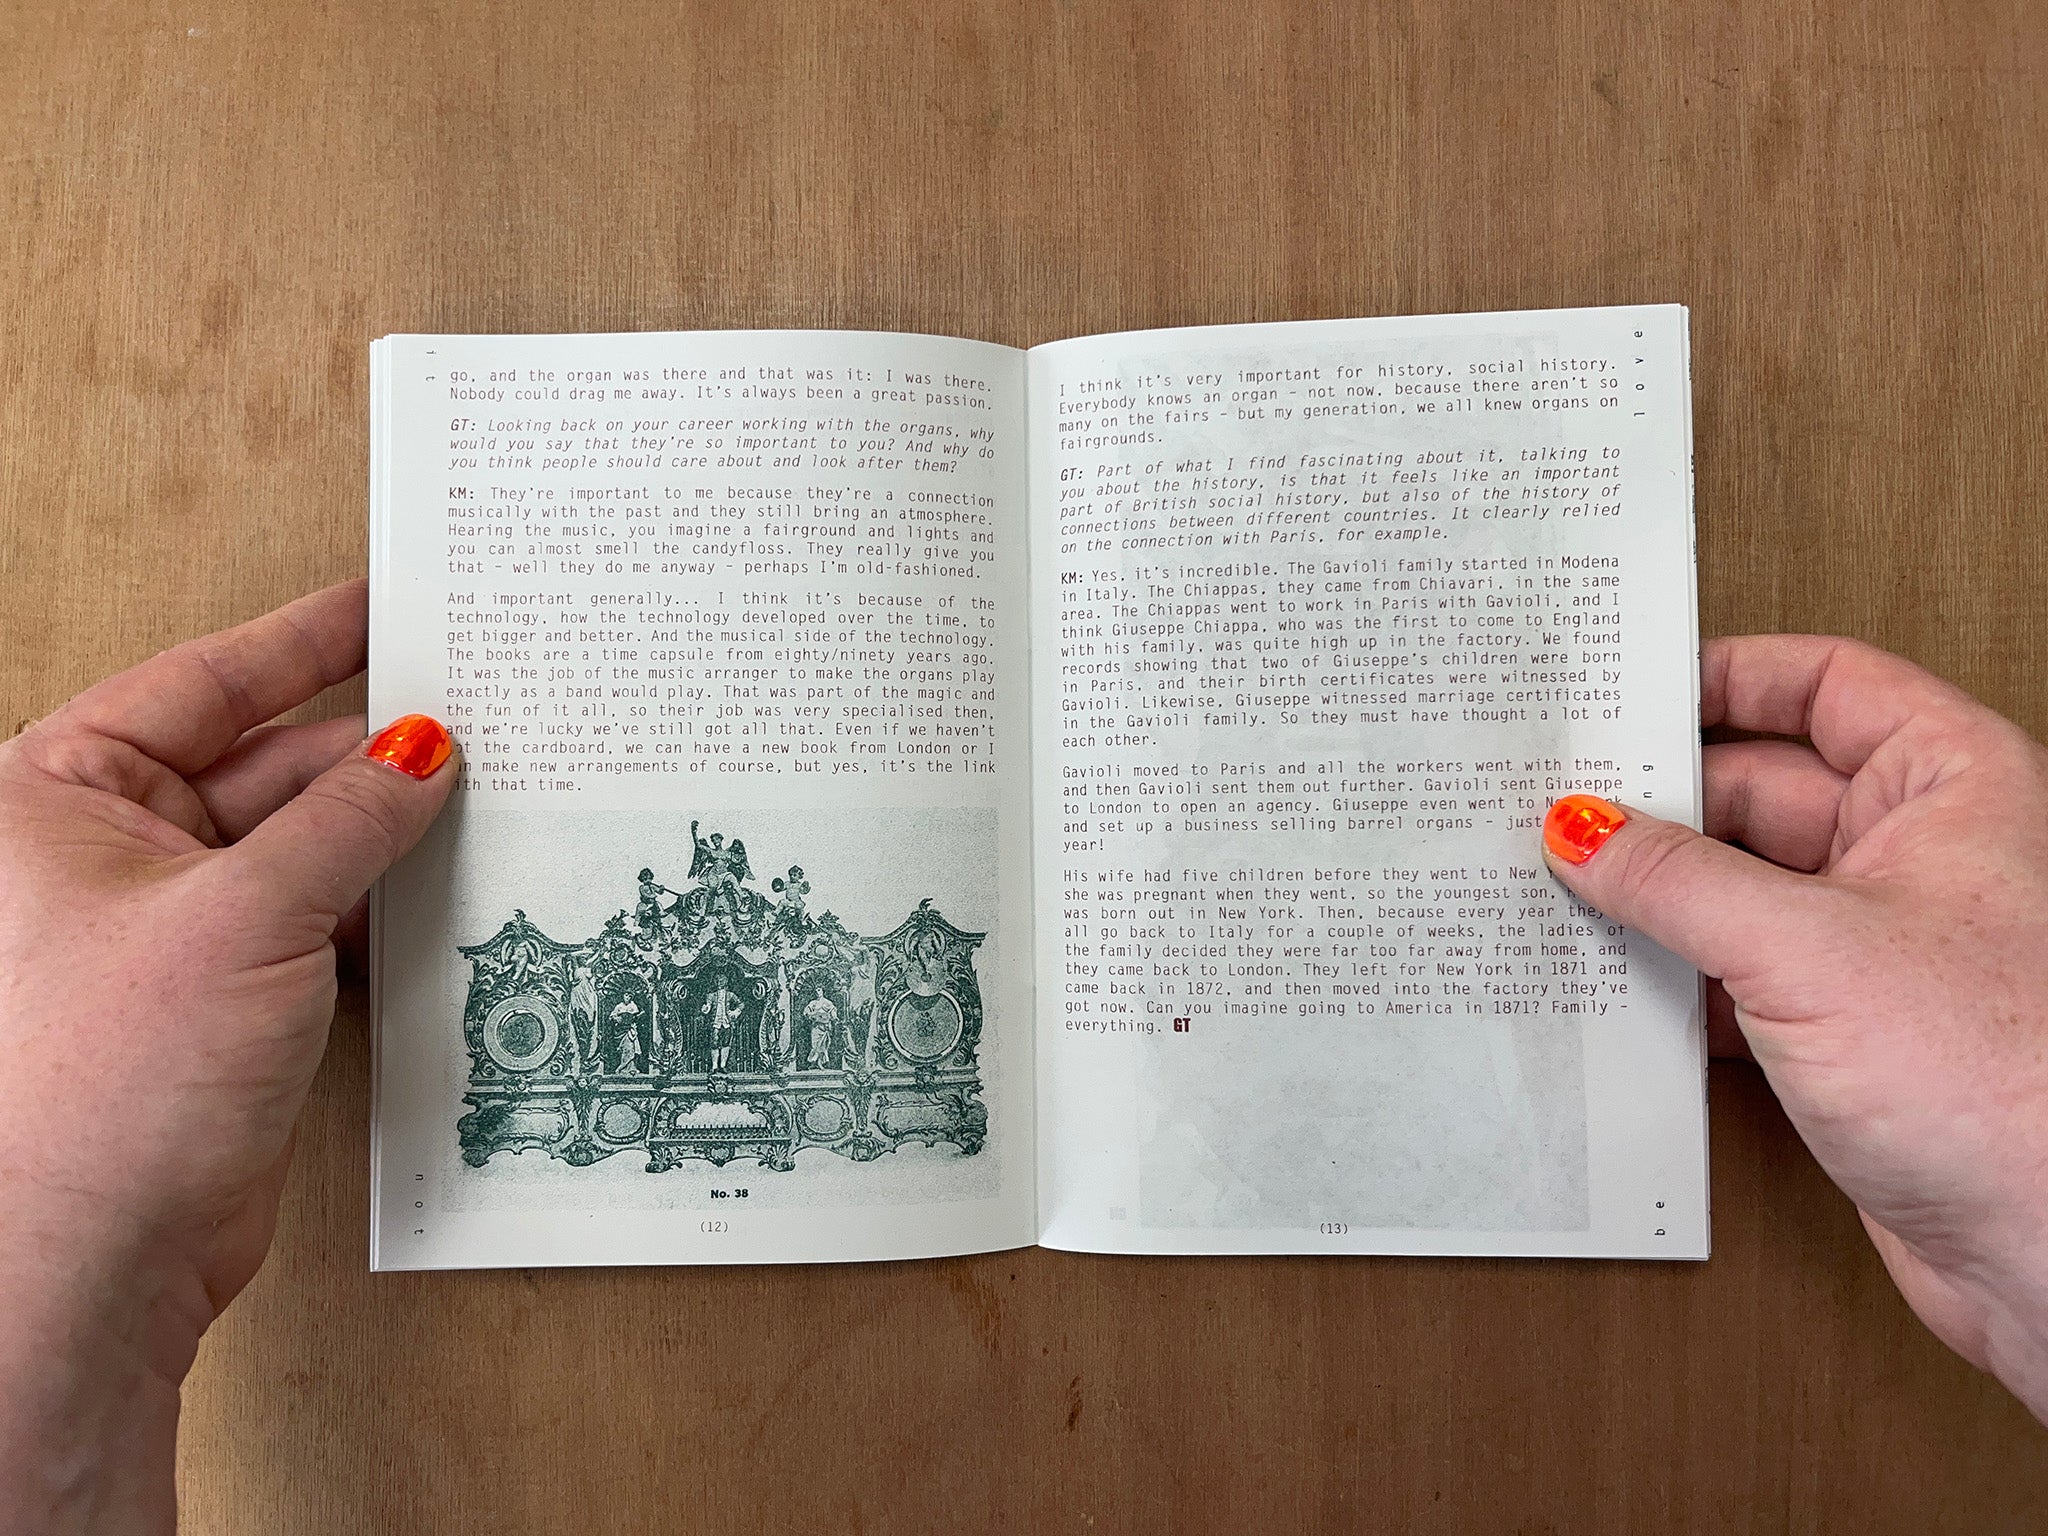 go, and the organ was there and that was it: I was there.
Nobody could drag me away. It's always been a great passion.
GT: Looking back on your career working with the organs, why
would you say that they're so important to you? And why do
you think people should care about and look after them?
KM: They're important to me because they're a connection
musically with the past and they still bring an atmosphere.
Hearing the music, you imagine a fairground and lights and
you can almost smell the candyfloss. They really give you
that - well they do me anyway - perhaps I'm old-fashioned.
And important generally... I think it's because of the
technology, how the technology developed over the time, to
get bigger and better. And the musical side of the technology.
The books are a time capsule from eighty/ninety years ago.
It was the job of the music arranger to make the organs play
exactly as a band would play. That was part of the magic and
the fun of it all, so their job was very specialised then,
and we're lucky we've still got all that. Even if we haven't
the cardboard, we can have a new book from London or I
make new arrangements of course, but yes, it's the link
with that time.
No. 38
(12)
n o t
I think it's very important for history, social history.
Everybody knows an organ - not now, because there aren't so
many on the fairs - but my generation, we all knew organs on
fairgrounds.
GT: Part of what I find fascinating about it, talking to
you about the history, is that it feels like an important
part of British social history, but also of the history of
connections between different countries. It clearly relied
on the connection with Paris, for example.
KM: Yes, it's incredible. The Gavioli family started in Modena
in Italy. The Chiappas, they came from Chiavari, in the same
area. The Chiappas went to work in Paris with Gavioli, and I
think Giuseppe Chiappa, who was the first to come to England
with his family, was quite high up in the factory. We found
records showing that two of Giuseppe's children were born
in Paris, and their birth certificates were witnessed by
Gavioli. Likewise, Giuseppe witnessed marriage certificates
in the Gavioli family. So they must have thought a lot of
each other.
Gavioli moved to Paris and all the workers went with them,
and then Gavioli sent them out further. Gavioli sent Giuseppe
to London to open an agency. Giuseppe even went to
and set up a business selling barrel organs - just
year!
His wife had five children before they went to New
she was pregnant when they went, so the youngest son,
was born out in New York. Then, because every year
all go back to Italy for a couple of weeks, the ladies of
the family decided they were far too far away from home, and
they came back to London. They left for New York in 1871 and
came back in 1872, and then moved into the factory they've
got now. Can you imagine going to America in 1871? Family -
everything. GT
(13)
l o v e
b e